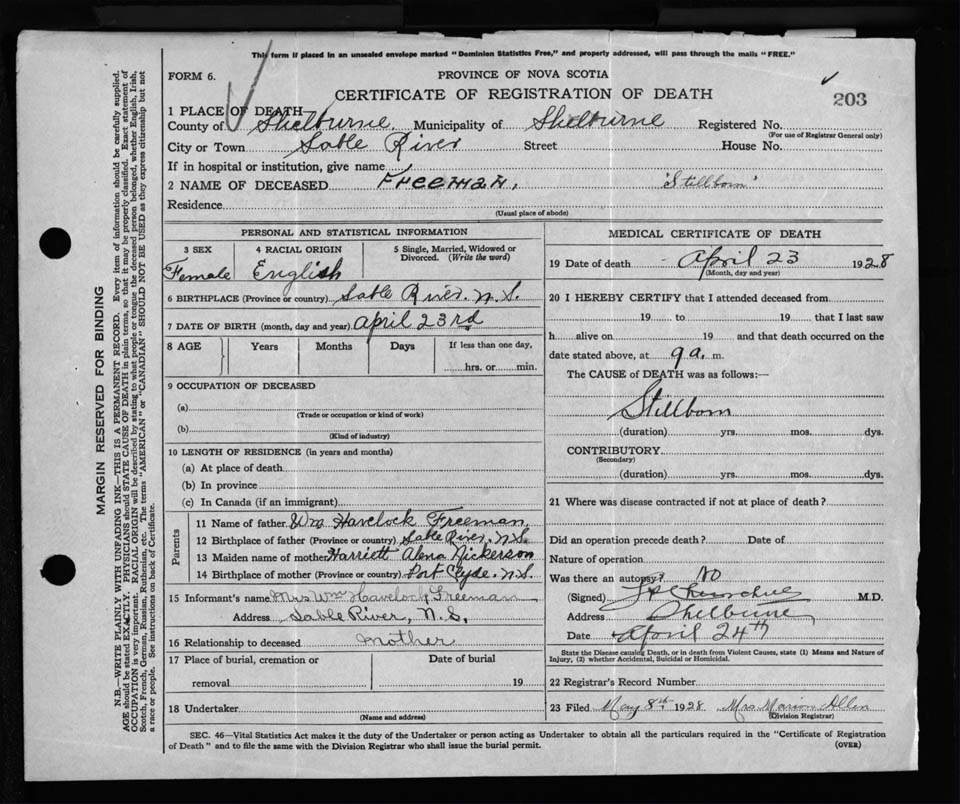 This form if placed in an unsealed envelope marked "Dominion Statistics Free," and properly addressed, will pass through the mails "FREE."
FORM 6.
PROVINCE OF NOVA SCOTIA
CERTIFICATE OF REGISTRATION OF DEATH
203
1 PLACE OF DEATH
County of Shelburne Municipality of Shelburne Registered No.
(For use of Registrar General only)
City or Town Sable River Street House No.
If in hospital or institution, give name
2 NAME OF DECEASED Freeman, 'Stillborn'
Residence
(Usual place of abode)
PERSONAL AND STATISTICAL INFORMATION
3 SEX 4 RACIAL ORIGIN 5 Single, Married, Widowed or Divorced. (Write the word)
Female English
6 BIRTHPLACE (Province or country) Sable River. N.S.
7 DATE OF BIRTH (month, day and year) April 23rd
8 AGE Years Months Days If less than one day,
hrs. or min.
9 OCCUPATION OF DECEASED
(a)
(Trade or occupation or kind of work)
(b)
(Kind of industry)
10 LENGTH OF RESIDENCE (in years and months)
(a) At place of death
(b) In province
(c) In Canada (if an immigrant)
Parents
11 Name of father Wm Havelock Freeman.
12 Birthplace of father (Province or country) Sable River, N.S.
13 Maiden name of mother Harriett Alena Nickerson
14 Birthplace of mother (Province or country) Port Clyde. N.S.
15 Informant's name Mrs Wm Havelock Freeman
Address Sable River, N.S.
16 Relationship to deceased mother
17 Place of burial, cremation or Date of burial
removal 19
18 Undertaker
(Name and address)
MEDICAL CERTIFICATE OF DEATH
19 Date of death April 23 1928
(Month, day and year)
20 I HEREBY CERTIFY that I attended deceased from
19 to 19 that I last saw
h alive on 19 and that death occurred on the
date stated above, at 9 a. m.
The CAUSE of DEATH was as follows:—
Stillborn
(duration) yrs. mos. dys.
CONTRIBUTORY
(Secondary)
(duration) yrs. mos. dys.
21 Where was disease contracted if not at place of death?
Did an operation precede death? Date of
Nature of operation
Was there an autopsy? No
(Signed) M.D.
Address Shelburne
Date April 24th
State the Disease causing Death, or in death from Violent Causes, state (1) Means and Nature of
Injury, (2) whether Accidental, Suicidal or Homicidal.
22 Registrar's Record Number
23 Filed May 8th 1928 Mrs Marion Allen
(Division Registrar)
SEC. 46—Vital Statistics Act makes it the duty of the Undertaker or person acting as Undertaker to obtain all the particulars required in the "Certificate of Registration
of Death" and to file the same with the Division Registrar who shall issue the burial permit.
(OVER)
MARGIN RESERVED FOR BINDING
N.B.—WRITE PLAINLY, WITH UNFADING INK—THIS IS A PERMANENT RECORD. Every item of information should be carefully supplied.
AGE should be stated EXACTLY. PHYSICIANS should STATE CAUSE OF DEATH in plain terms, so that it may be properly classified. Exact statement of
OCCUPATION is very important. RACIAL ORIGIN will be described by stating to what people or tongue the deceased person belonged, whether English, Irish,
Scotch, French, German, Russian, Ruthenian, etc. The terms "AMERICAN" or "CANADIAN" SHOULD NOT BE USED as they express citizenship but not
a race or people. See instructions on back of Certificate.